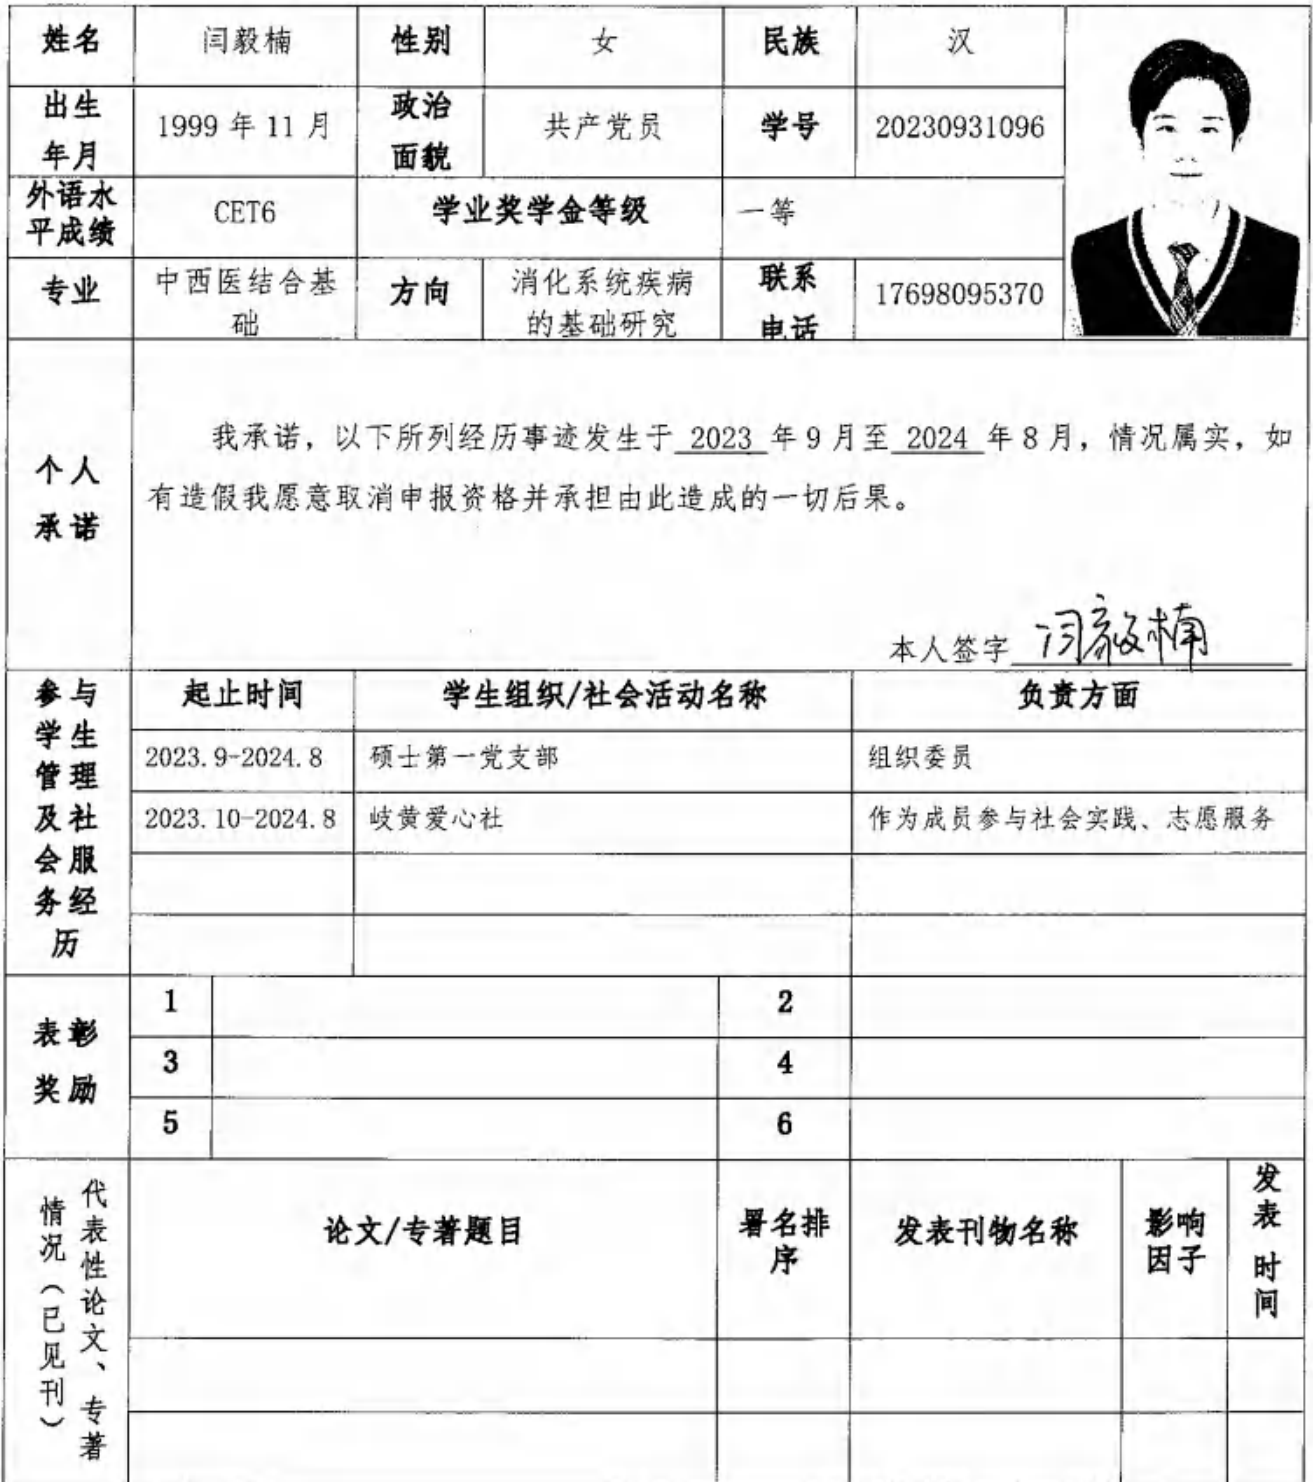 姓名 闫毅楠 性别 女 民族 汉
出生年月 1999年11月 政治面貌 共产党员 学号 20230931096
外语水平成绩 CET6 学业奖学金等级 一等
专业 中西医结合基础 方向 消化系统疾病的基础研究 联系电话 17698095370
个人承诺
我承诺，以下所列经历事迹发生于 2023 年9月至 2024 年8月，情况属实，如
有造假我愿意取消申报资格并承担由此造成的一切后果。
本人签字 闫毅楠
参与学生管理及社会服务经历
起止时间 学生组织/社会活动名称 负责方面
2023.9-2024.8 硕士第一党支部 组织委员
2023.10-2024.8 岐黄爱心社 作为成员参与社会实践、志愿服务
表彰奖励
1 2
3 4
5 6
代表性论文、专著情况（已见刊）
论文/专著题目 署名排序 发表刊物名称 影响因子 发表时间